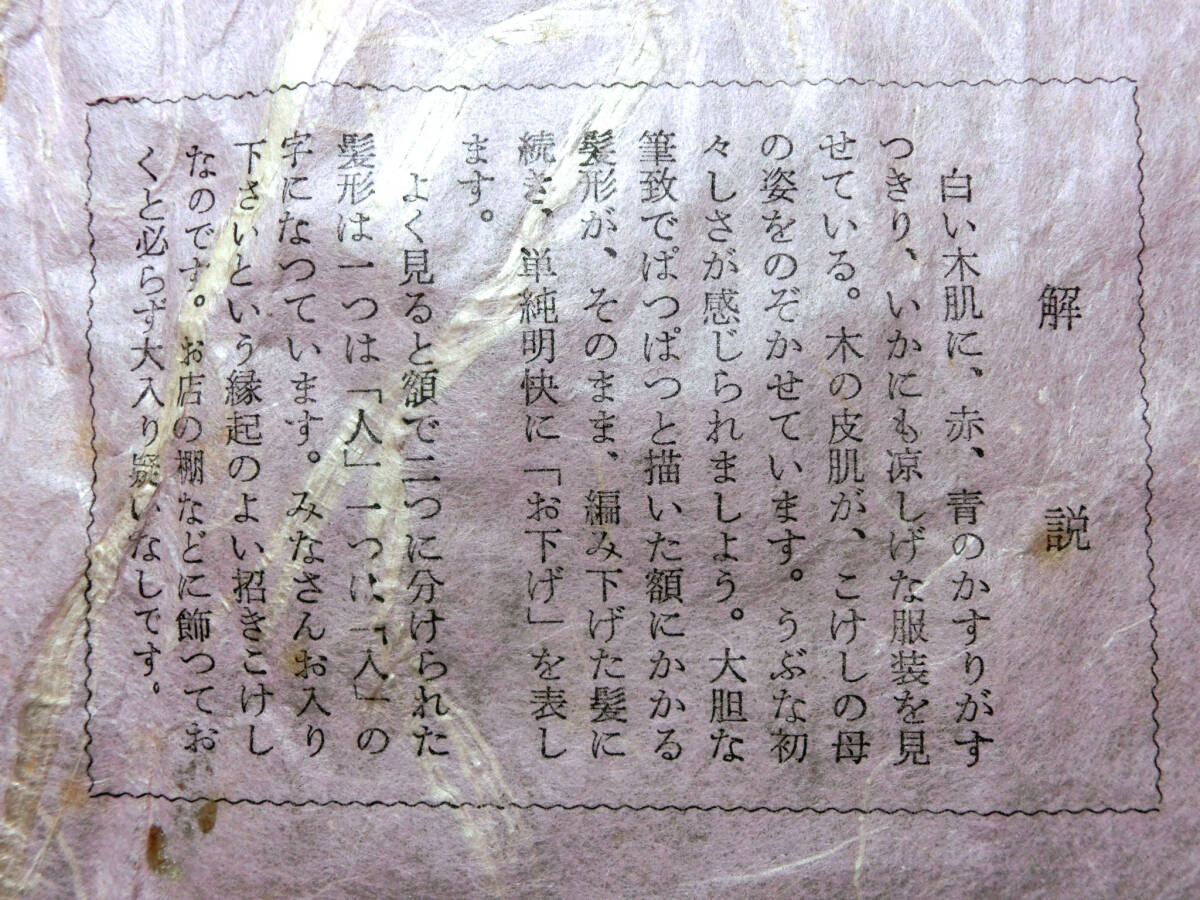 解説
白い木肌に、赤、青のかすりがす
つきり、いかにも凉しげな服装を見
せている。木の皮肌が、こけしの母
の姿をのぞかせています。うぶな初
々しさが感じられましよう。大胆な
筆致でぱつぱつと描いた額にかかる
髪形が、そのまま、編み下げた髪に
続き、単純明快に「お下げ」を表し
ます。
よく見ると額で二つに分けられた
髪形は一つは「人」一つは、「入」の
字になつています。みなさんお入り
下さいという縁起のよい招きこけし
なのです。お店の棚などに飾つてお
くと必らず大入り疑いなしです。